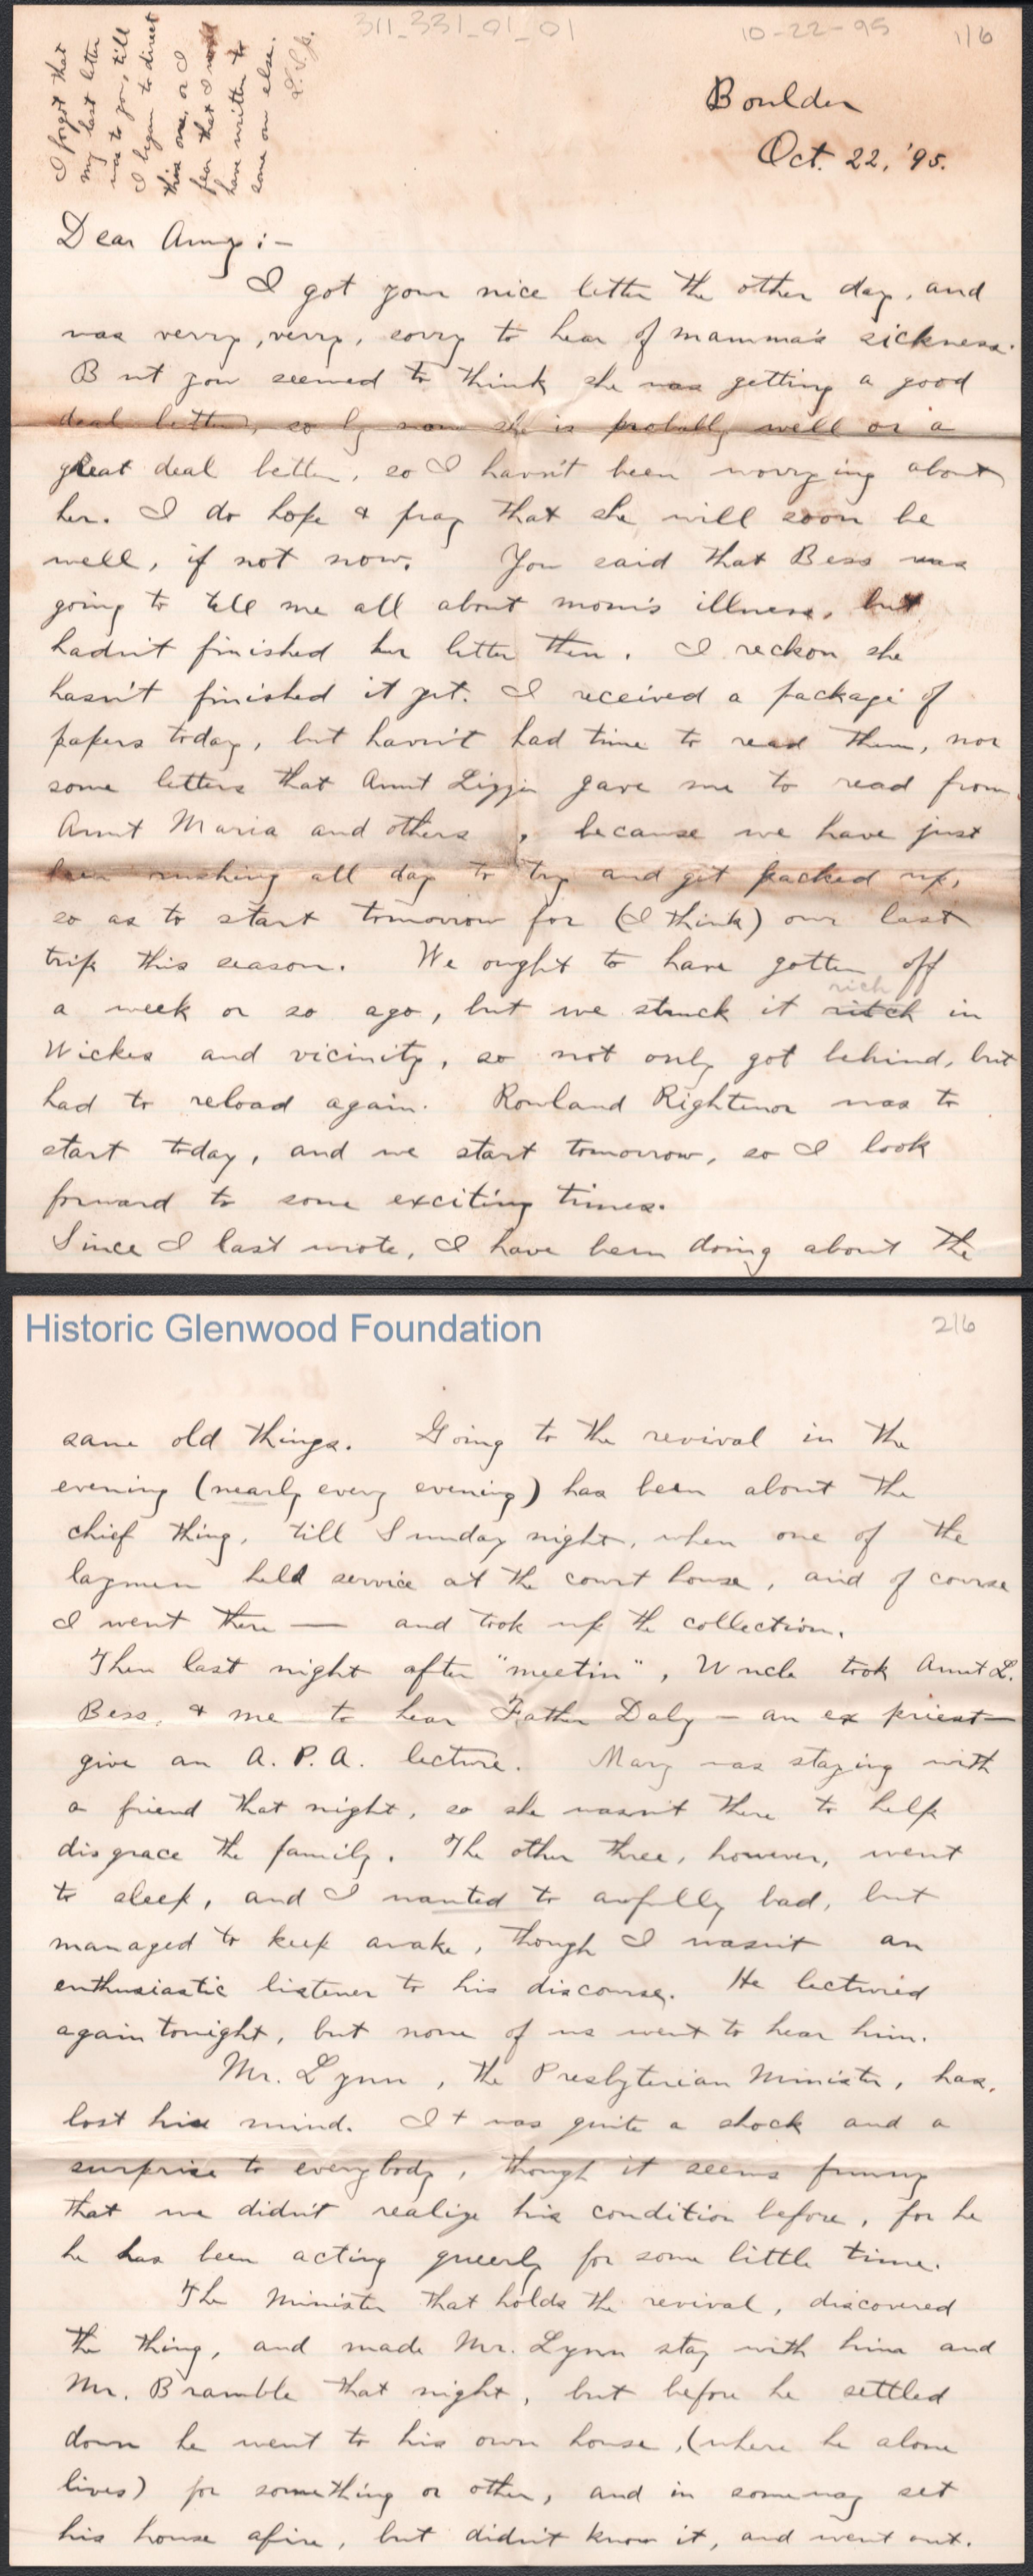 311_331_01_01
10-22-95
1/6
I forgot that
my last letter
was to you, till
I began to direct
this one, or I
fear that I
have written to
some one else.
L.S.J.
Boulder
Oct. 22, '95.
Dear Amy :-
I got your nice letter the other day, and
was verry, verry, sorry to hear of mamma's sickness.
But you seemed to think she was getting a good
deal better, so by now she is probably well or a
great deal better, so I havn't been worrying about
her. I do hope & pray that she will soon be
well, if not now. You said that Bess was
going to tell me all about mom's illness, but
hadn't finished her letter then. I reckon she
hasn't finished it yet. I received a package of
papers today, but havn't had time to read them, nor
some letters that Aunt Lizzie gave me to read from
Aunt Maria and others, because we have just
been rushing all day to try and get packed up,
so as to start tomorrow for (I think) our last
trip this season. We ought to have gotten off
a week or so ago, but we struck it ritch rich in
Wickes and vicinity, so not only got behind, but
had to reload again. Rowland Rightenor was to
start today, and we start tomorrow, so I look
forward to some exciting times.
Since I last wrote, I have been doing about the
Historic Glenwood Foundation
2/6
same old things. Going to the revival in the
evening (nearly every evening) has been about the
chief thing, till Sunday night, when one of the
laymen held service at the court house, and of course
I went there — and took up the collection.
Then last night after "meetin", Uncle took Aunt L.
Bess, & me to hear Father Daly - an ex priest —
give an A.P.A. lecture. Mary was staying with
a friend that night, so she wasn't there to help
disgrace the family. The other three, however, went
to sleep, and I wanted to awfully bad, but
managed to keep awake, though I wasn't an
enthusiastic listener to his discourse. He lectured
again tonight, but none of us went to hear him.
Mr. Lynn, the Presbyterian Minister, has,
lost his mind. It was quite a shock and a
surprise to everybody, though it seems funny
that we didn't realize his condition before, for he
he has been acting queerly for some little time.
The Minister that holds the revival, discovered
the thing, and made Mr. Lynn stay with him and
Mr. Bramble that night, but before he settled
down he went to his own house, (where he alone
lives) for something or other, and in someway set
his house afire, but didn't know it, and went out.